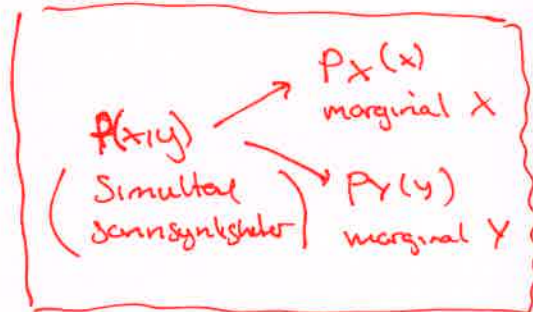 P(x,y)
(Simultane
sannsynligheter)
P_X(x)
marginal X
P_Y(y)
marginal Y